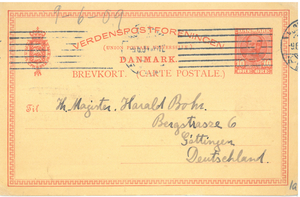 VERDENSPOSTFORENINGEN
(UNION POSTALE UNIVERSELLE)
DANMARK.
BREVKORT. (CARTE POSTALE.)
10 10
ØRE ØRE
Til
Hr. Magister Harald Bohr.
Bergstrasse 6
Göttingen
Deutschland.